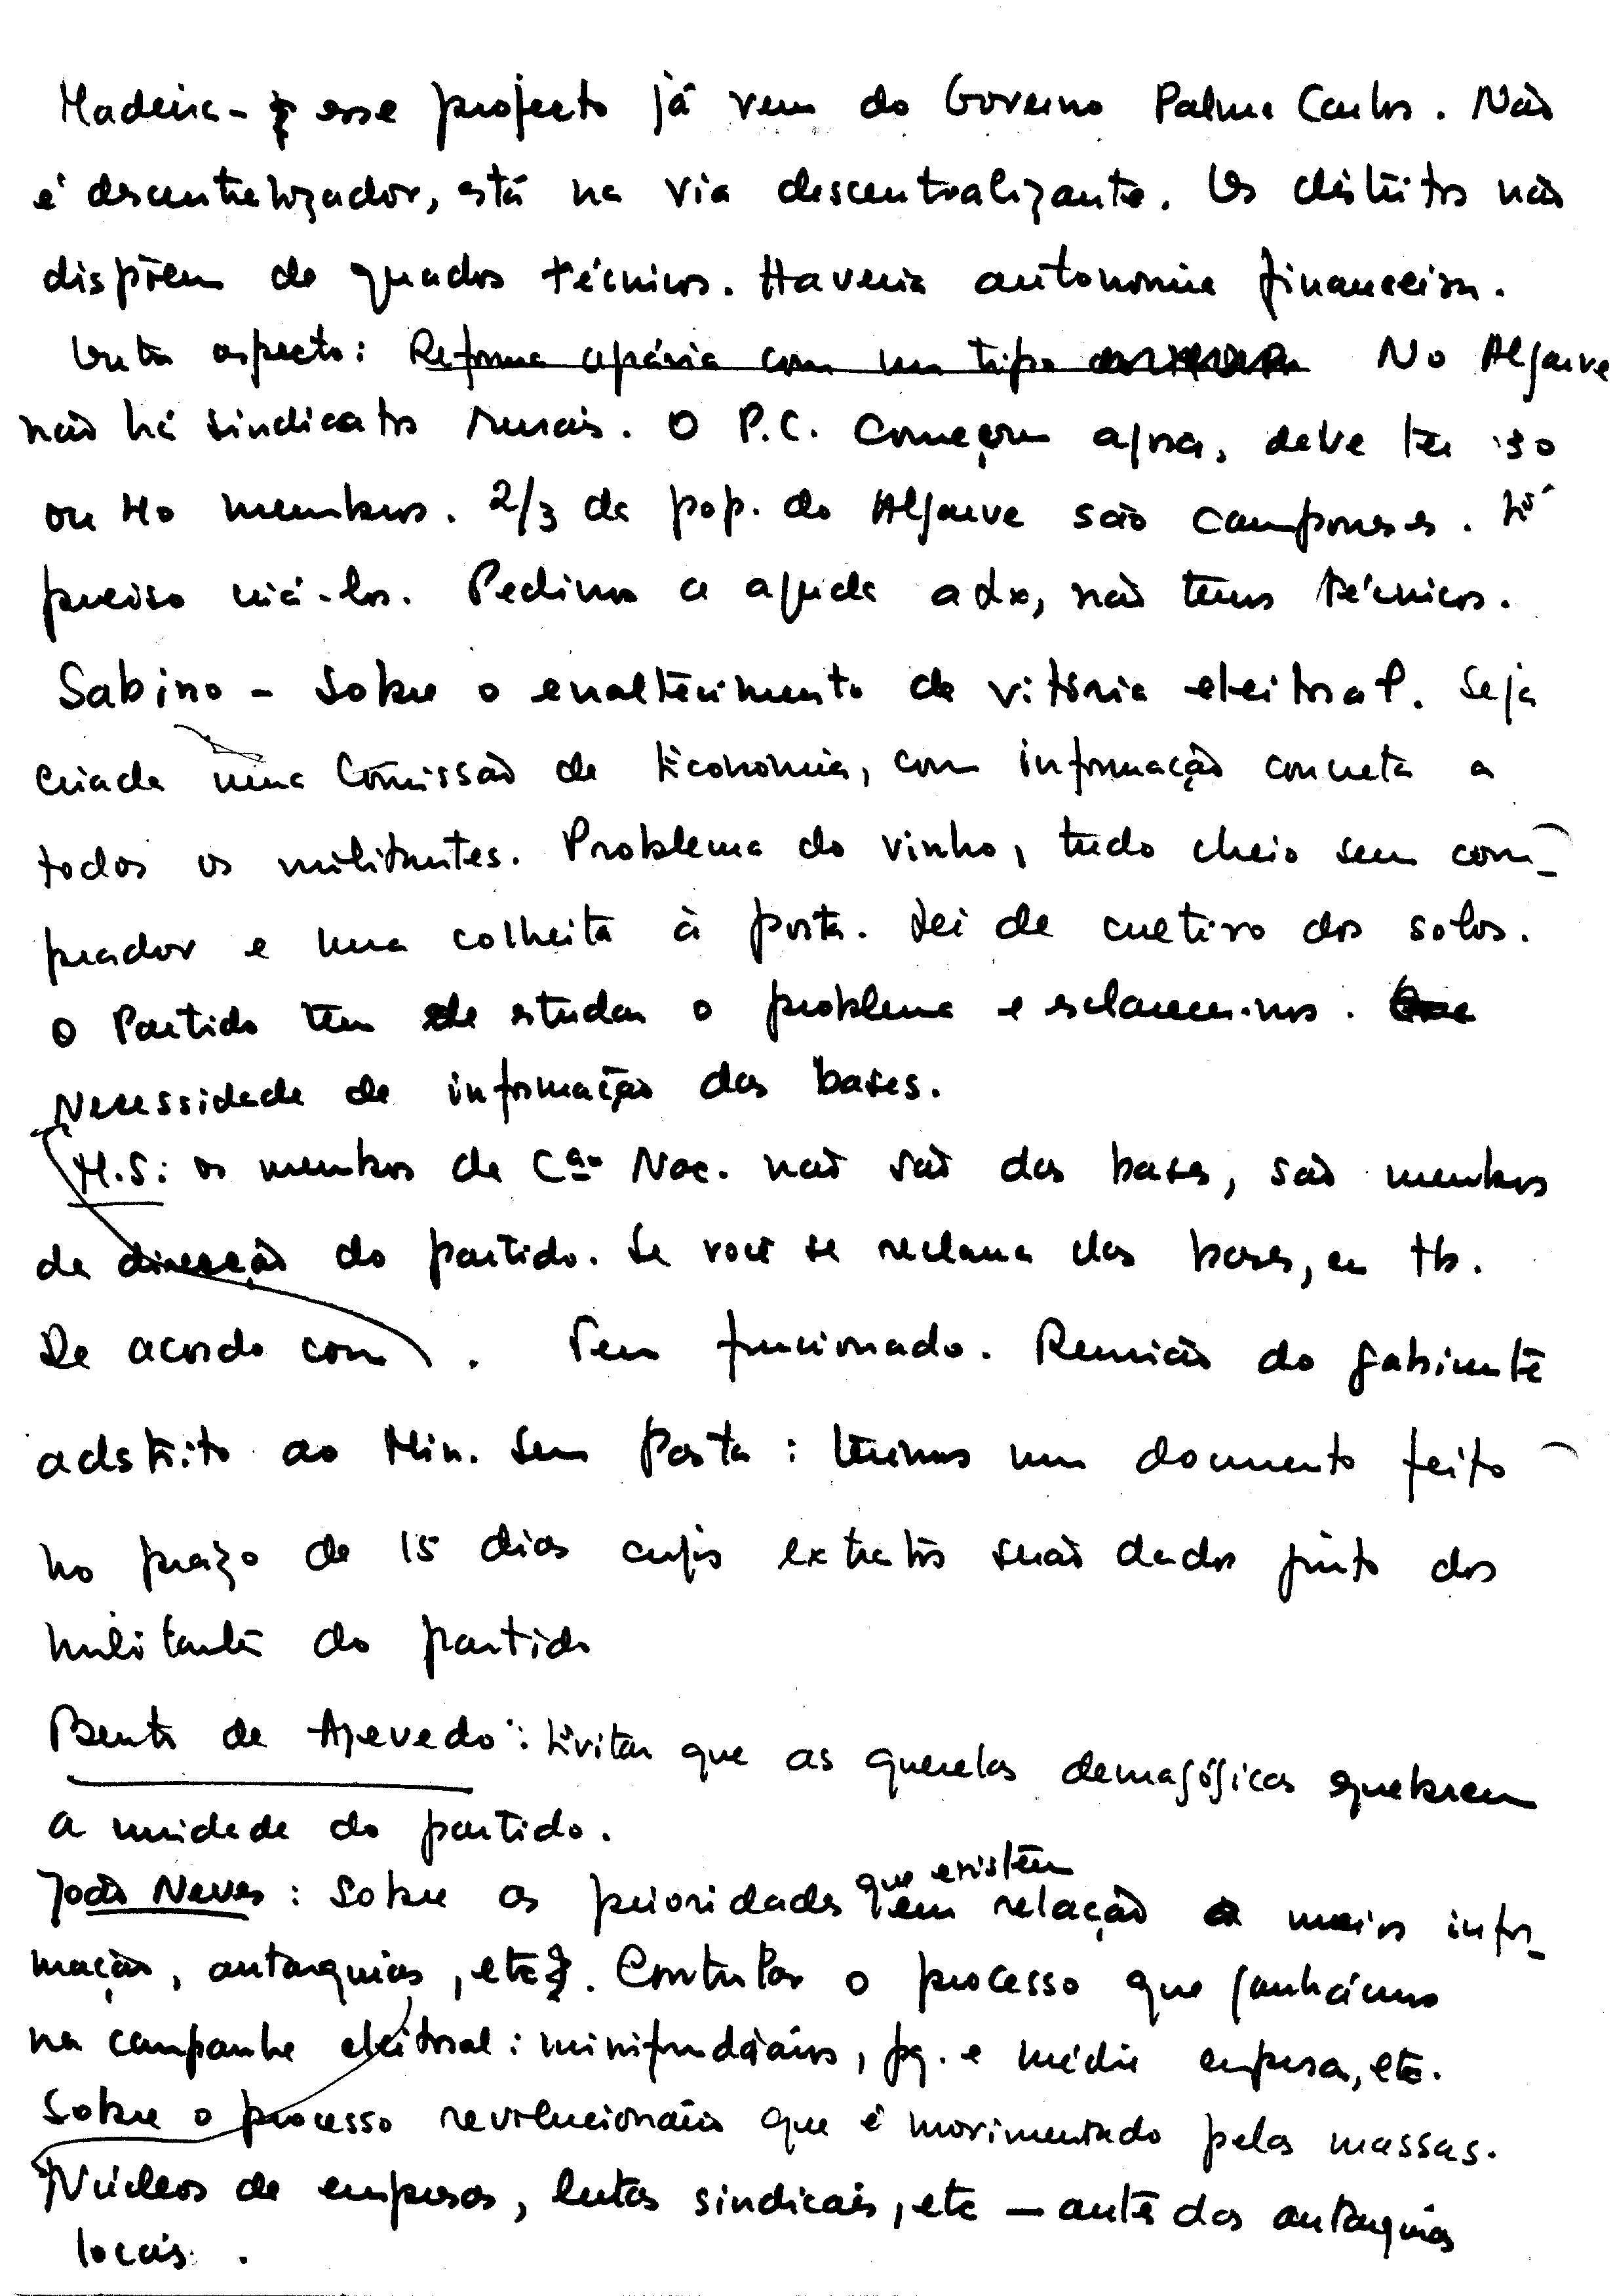 Madeira - esse projecto já vem do Governo Palma Carlos. Não
é descentralizador, está na via descentralizante. Os distritos não
dispõem de quadros técnicos. Haveria autonomia financeira.
Outro aspecto: Reforma agrária com um tipo No Algarve
não há sindicatos rurais. O P.C. começou agora, deve ter 30
ou 40 membros. 2/3 da pop. do Algarve são camponeses. É
preciso criá-los. Pedimos a ajuda a Lx, não temos técnicos.
Sabino - Sobre o enaltecimento da vitória eleitoral. Seja
criada uma Comissão de Economia, com informação concreta a
todos os militantes. Problema do vinho, tudo cheio sem com-
prador e uma colheita à porta. Lei de cultivo dos solos.
O Partido tem de estudar o problema e esclarecer-nos. Que
Necessidade de informação das bases.
M.S: os membros da Cão Nac. não são das bases, são membros
da direcção do partido. Se você se reclama das bases, eu tb.
De acordo com . Tem funcionado. Reunião do gabinete
adstrito ao Min. sem Pasta: termos um documento feito
no prazo de 15 dias cujos extratos serão dados junto dos
militantes do partido
Bento de Azevedo: Evitar que as querelas demagógicas quebrem
a unidade do partido.
João Neves: Sobre as prioridades que existem em relação a meios infor-
mação, autarquias, etc. Controlar o processo que ganhámos
na campanha eleitoral: minifundiários, pq. e média empresa, etc.
Sobre o processo revolucionário que é movimentado pelas massas.
Núcleos de empresas, lutas sindicais, etc - antes das autarquias
locais.